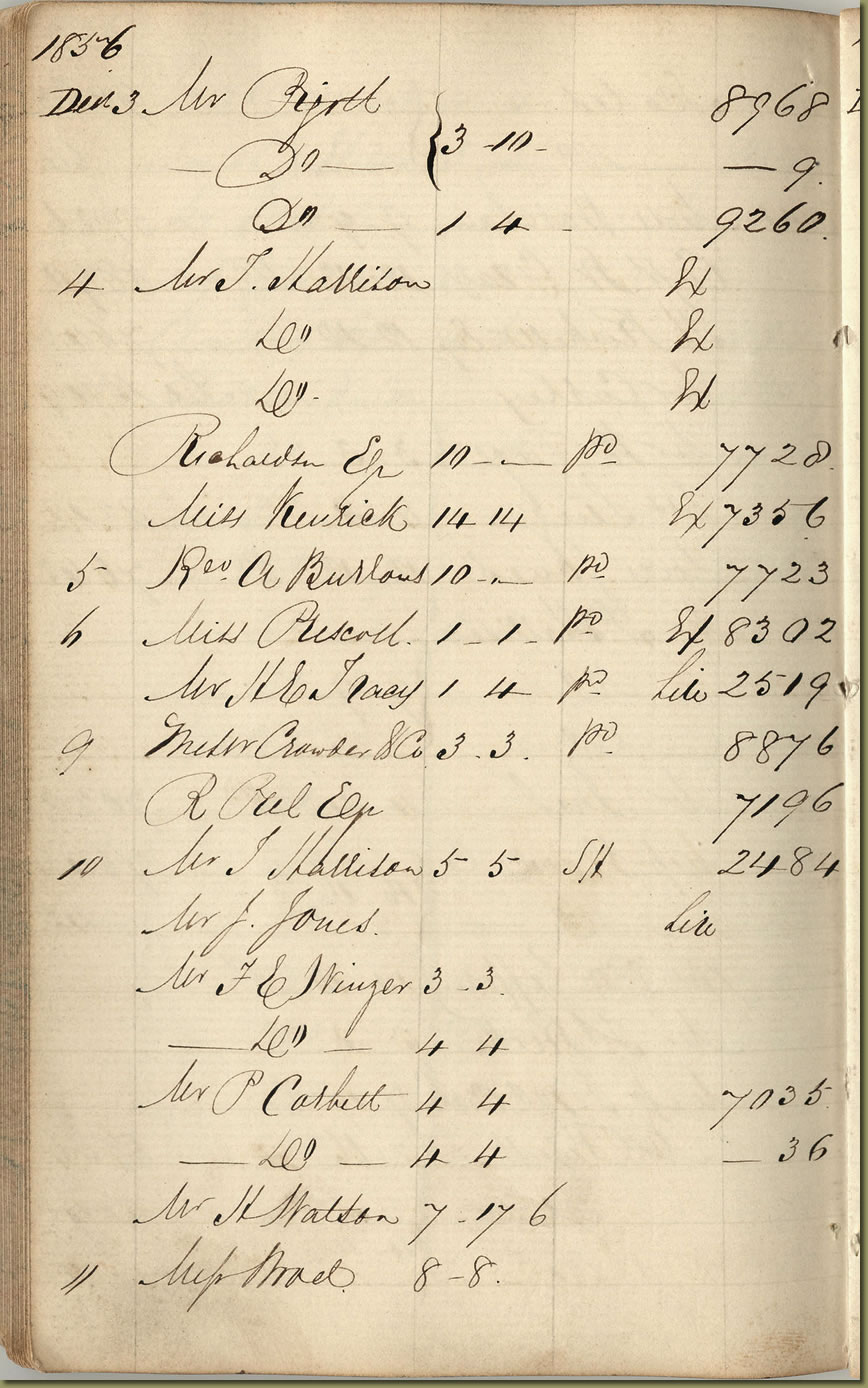 1856
Decr 3 Mr Pigott 8968
— Do — { 3 -10 - — 9.
Do — 1 4 - 9260.
4 Mr T. Hallison Ex
Do Ex
Do - Ex
Richardson Eq 10 - - — pd 7728
Miss Kenrick 14 14 Ex 7356
5 Revd. A Burrows 10 - - — pd 7723
6 Miss Prescott. 1 - 1 - pd Ex 8302
Mr H E Tracy 1 4 pd 2519
9 Messr Crowder & Co 3 . 3 . pd 8876
R Peel Eq 7196
10 Mr T Hallison 5 5 SH 2484
Mr J. Jones.
Mr F E Winzer 3 - 3.
— Do — 4 4
Mr P Corbett 4 4 7035
— Do — 4 4 — 36
Mr H Watson 7 - 17 6
11 8 - 8.